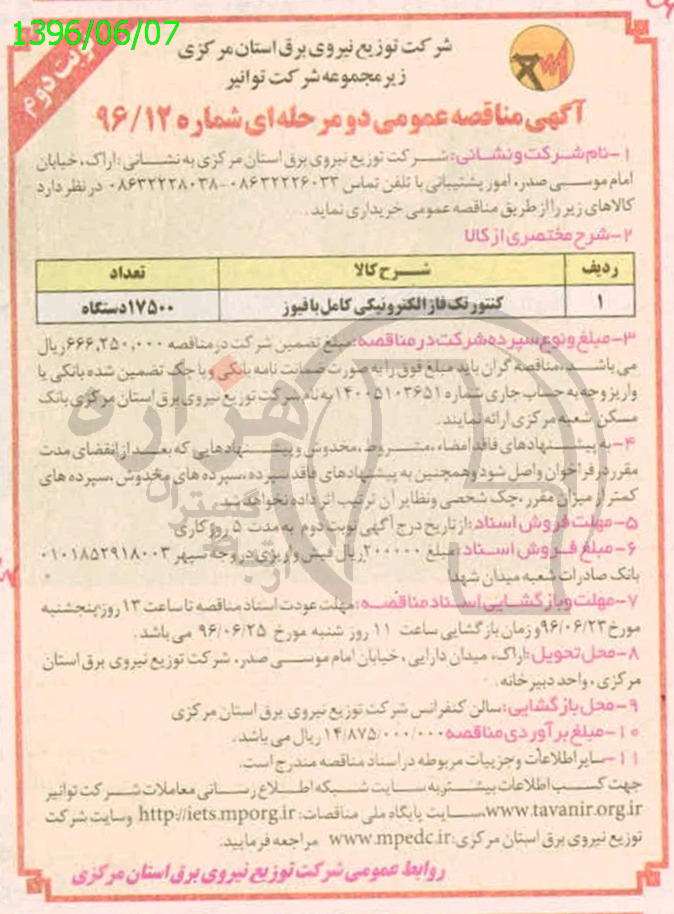 1396/06/07
نوبت دوم
شرکت توزیع نیروی برق استان مرکزی
زیرمجموعه شرکت توانیر
آگهی مناقصه عمومی دو مرحله ای شماره ۹۶/۱۲
۱-نام شرکت و نشانی: شرکت توزیع نیروی برق استان مرکزی به نشانی: اراک، خیابان
امام موسی صدر، امور پشتیبانی با تلفن تماس ۰۸۶۳۲۲۲۶۰۳۳-۰۸۶۳۲۲۲۸۰۳۸ در نظر دارد
کالاهای زیر را از طریق مناقصه عمومی خریداری نماید.
۲-شرح مختصری از کالا
ردیف شرح کالا تعداد
۱ کنتور تکفاز الکترونیکی کامل با فیوز ۱۷۵۰۰ دستگاه
۳-مبلغ و نوع سپرده شرکت در مناقصه: مبلغ تضمین شرکت در مناقصه ۶۶۶,۲۵۰,۰۰۰ ریال
می باشد، مناقصه گران باید مبلغ فوق را به صورت ضمانت نامه بانکی و یا چک تضمین شده بانکی یا
واریز وجه به حساب جاری شماره ۱۴۰۰۵۱۰۳۶۵۱ به نام شرکت توزیع نیروی برق استان مرکزی بانک
مسکن شعبه مرکزی ارائه نمایند.
۴-به پیشنهادهای فاقد امضاء، مشروط، مخدوش و پیشنهادهایی که بعد از انقضای مدت
مقرر در فراخوان واصل شود و همچنین به پیشنهادهای فاقد سپرده، سپرده های مخدوش، سپرده های
کمتر از میزان مقرر، چک شخصی و نظایر آن ترتیب اثر داده نخواهد شد.
۵-مهلت فروش اسناد: از تاریخ درج آگهی نوبت دوم به مدت ۵ روز کاری
۶-مبلغ فروش اسناد: مبلغ ۲۰۰۰۰۰ ریال فیش واریزی در وجه سپهر ۰۱۰۱۸۵۲۹۱۸۰۰۳
بانک صادرات شعبه میدان شهدا
۷-مهلت و بازگشایی اسناد مناقصه: مهلت عودت اسناد مناقصه تا ساعت ۱۳ روز پنجشنبه
مورخ ۹۶/۰۶/۲۳ و زمان بازگشایی ساعت ۱۱ روز شنبه مورخ ۹۶/۰۶/۲۵ می باشد.
۸-محل تحویل: اراک، میدان دارایی، خیابان امام موسی صدر، شرکت توزیع نیروی برق استان
مرکزی، واحد دبیرخانه.
۹-محل بازگشایی: سالن کنفرانس شرکت توزیع نیروی برق استان مرکزی
۱۰-مبلغ برآوردی مناقصه ۱۴/۸۷۵/۰۰۰/۰۰۰ ریال می باشد.
۱۱-سایر اطلاعات و جزییات مربوطه در اسناد مناقصه مندرج است.
جهت کسب اطلاعات بیشتر به سایت شبکه اطلاع رسانی معاملات شرکت توانیر
www.tavanir.org.ir، سایت پایگاه ملی مناقصات: http://iets.mporg.ir و سایت شرکت
توزیع نیروی برق استان مرکزی: www.mpedc.ir مراجعه فرمایید.
روابط عمومی شرکت توزیع نیروی برق استان مرکزی
هزاره